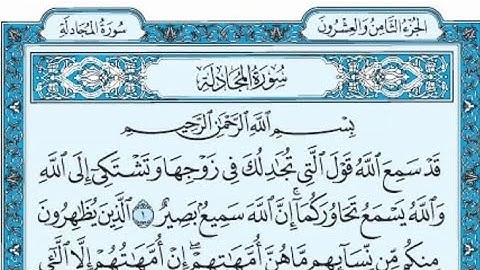 الجزء الثامن والعشرون
سورة المجادلة
سورة المجادلة
بِسْمِ اللَّهِ الرَّحْمَٰنِ الرَّحِيمِ
قَدْ سَمِعَ اللَّهُ قَوْلَ الَّتِي تُجَادِلُكَ فِي زَوْجِهَا وَتَشْتَكِي إِلَى اللَّهِ
وَاللَّهُ يَسْمَعُ تَحَاوُرَكُمَا إِنَّ اللَّهَ سَمِيعٌ بَصِيرٌ ١ الَّذِينَ يُظَاهِرُونَ
مِنكُم مِّن نِّسَائِهِم مَّا هُنَّ أُمَّهَاتِهِمْ إِنْ أُمَّهَاتُهُمْ إِلَّا اللَّائِي